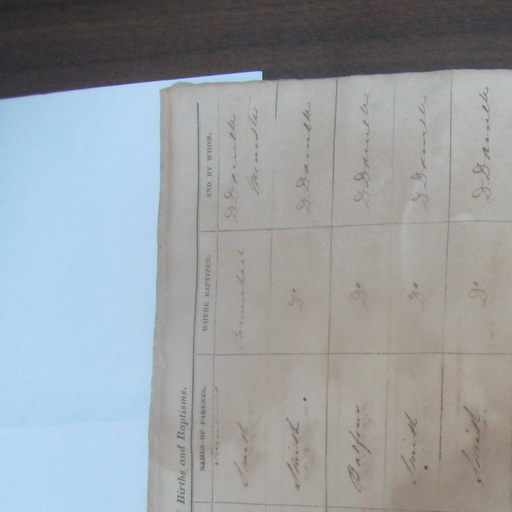 Births and Baptisms.
NAMES OF PARENTS. WHERE BAPTIZED. AND BY WHOM.
Surnames
Smith Carmichael D Daniell
Minister
Smith Do D Daniell
Balfour Do D Daniell
Smith Do D Daniell
Smith Do D Daniell